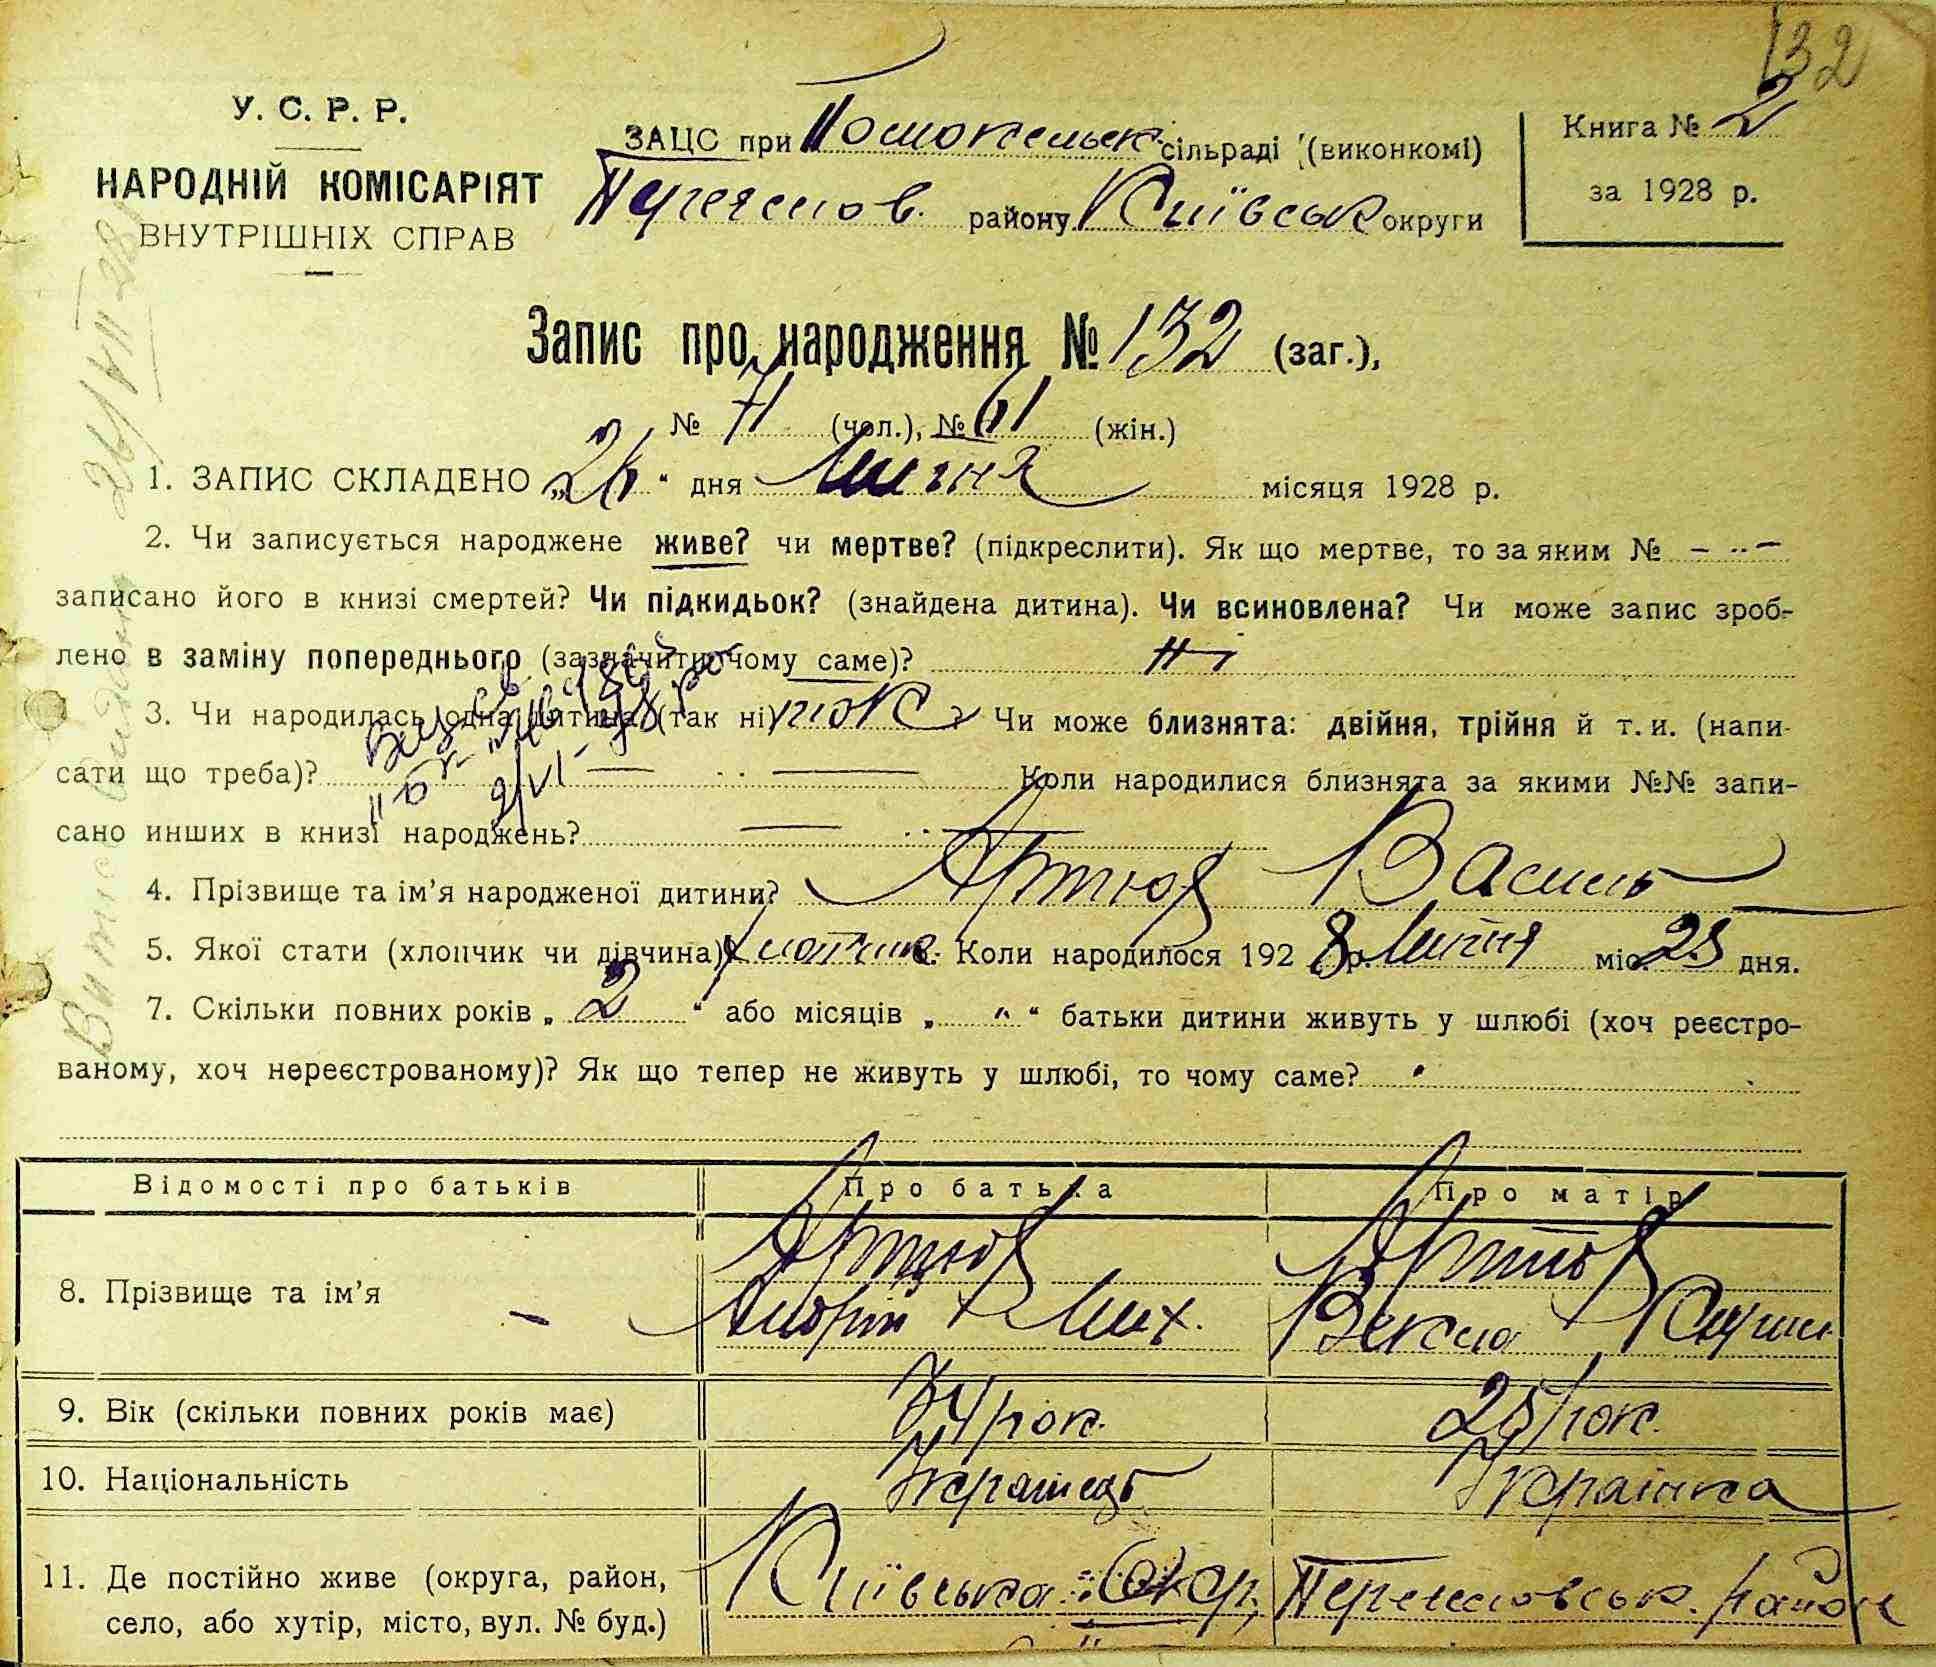 132
У. С. Р. Р.
НАРОДНІЙ КОМІСАРІЯТ
ВНУТРІШНІХ СПРАВ
ЗАЦС при Помокельск сільраді (виконкомі)
Переяслов. району Київськ округи
Книга № 2
за 1928 р.
Запис про народження № 132 (заг.),
№ 71 (чол.), № 61 (жін.)
1. ЗАПИС СКЛАДЕНО „26“ дня Липня місяця 1928 р.
2. Чи записується народжене живе? чи мертве? (підкреслити). Як що мертве, то за яким №
записано його в книзі смертей? Чи підкидьок? (знайдена дитина). Чи всиновлена? Чи може запис зроб-
лено в заміну попереднього (зазначити чому саме)? Ні
3. Чи народилась одна дитина (так ні) так? Чи може близнята: двійня, трійня й т. и. (напи-
сати що треба)? Коли народилися близнята за якими №№ запи-
сано инших в книзі народжень?
4. Прізвище та ім’я народженої дитини? Артюх Василь
5. Якої стати (хлопчик чи дівчина)? Хлопчик. Коли народилося 1928 р. Липня міс. 25 дня.
7. Скільки повних років „2“ або місяців „ “ батьки дитини живуть у шлюбі (хоч реєстро-
ваному, хоч нереєстрованому)? Як що тепер не живуть у шлюбі, то чому саме?
Відомості про батьків Про батька Про матір
8. Прізвище та ім’я Артюх Артюх
Андрій Мих. Векла
9. Вік (скільки повних років має) 34 рок. 25 рок.
10. Національність Українець Українка
11. Де постійно живе (округа, район, Київська Окр, Переяловськ. район
село, або хутір, місто, вул. № буд.)